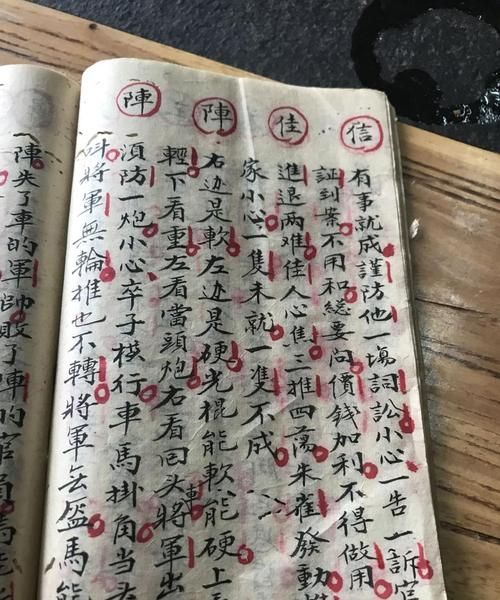 信
有事就成謹防他一場詞訟小心一告一訴官
証到案不用和総要问價錢加利不得做用
佳
進退两难佳人心焦三推四荡朱雀發動
家小心一隻未就一隻不成
陣
右边是軟左边是硬光棍能軟能硬上
輕下看重左看當頭炮右看回头將軍出
陣
須防一炮小心卒子横行車馬掛角当
將軍無輪推也不轉將軍無盔馬能
陣失了車的軍帥敗了陣的官